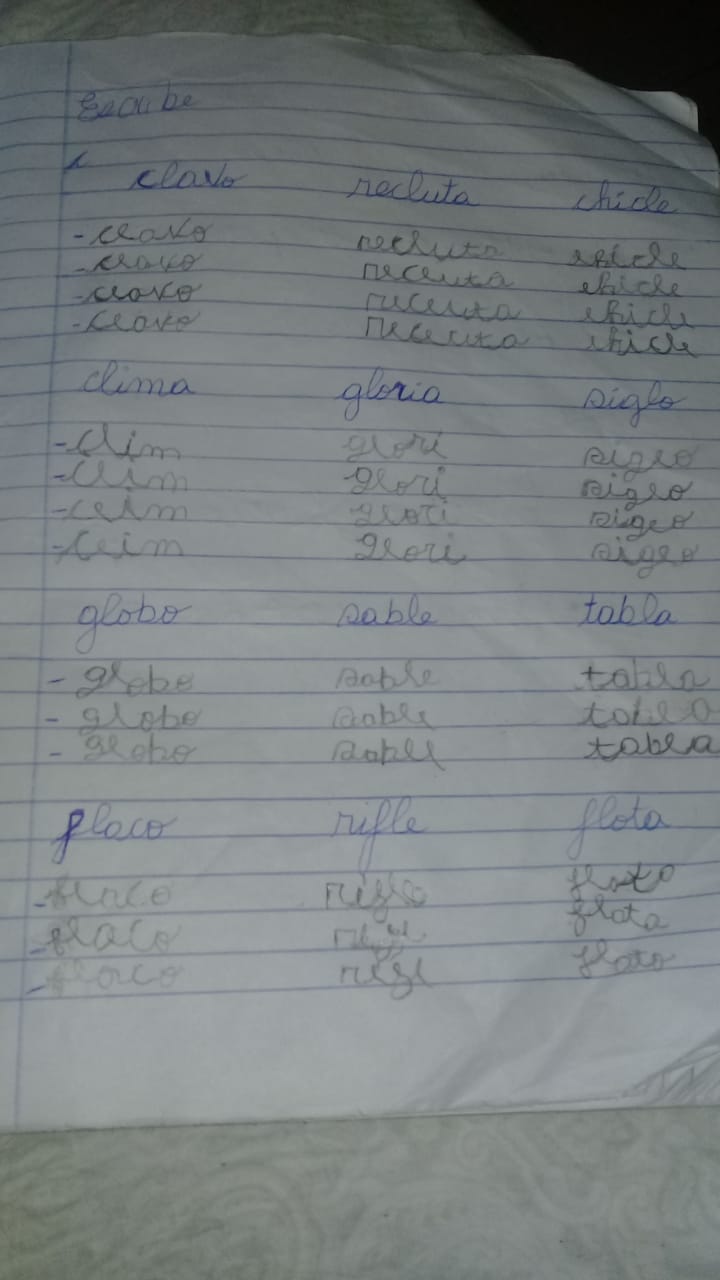 Escribe
clavo recluta chicle
- clavo recluta chicle
- clavo recluta chicle
- clavo recluta chicle
- clavo recluta chicle
clima gloria siglo
- clim glori siglo
- clim glori siglo
- clim glori siglo
- clim glori siglo
globo sable tabla
- globo sable tabla
- globo sable tabla
- globo sable tabla
flaco rifle flota
- flaco flota
- flaco flota
- flaco flota